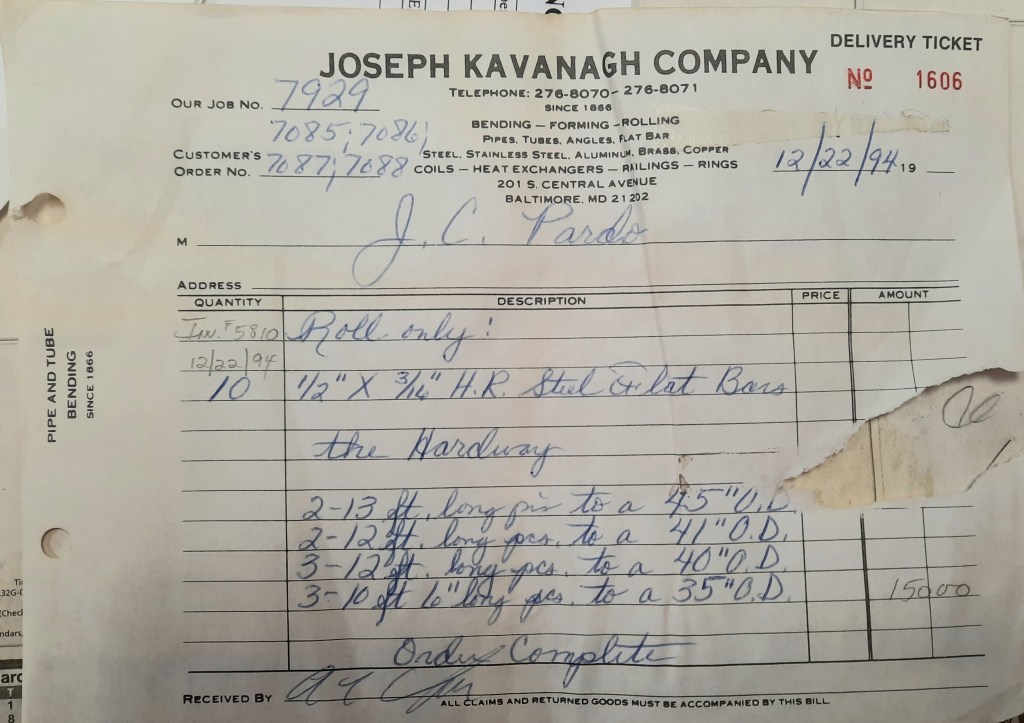 DELIVERY TICKET
JOSEPH KAVANAGH COMPANY
Nº 1606
TELEPHONE: 276-8070 - 276-8071
SINCE 1866
OUR JOB NO. 7929
BENDING — FORMING — ROLLING
7085; 7086;
PIPES, TUBES, ANGLES, FLAT BAR
CUSTOMER'S
ORDER NO. 7087; 7088
STEEL, STAINLESS STEEL, ALUMINUM, BRASS, COPPER
COILS — HEAT EXCHANGERS — RAILINGS — RINGS
12/22/94 19
201 S. CENTRAL AVENUE
BALTIMORE, MD 21202
M J. C. Pardo
ADDRESS
QUANTITY DESCRIPTION PRICE AMOUNT
Inv. # 5810 Roll only:
12/22/94
10 1/2" X 3/16" H.R. Steel Flat Bars
the Hardway
2-13 ft. long pcs to a 45" O.D.
2-12 ft. long pcs. to a 41" O.D.
3-12 ft. long pcs. to a 40" O.D.
3-10 ft 6" long pcs. to a 35" O.D. 150 00
Order Complete
RECEIVED BY
ALL CLAIMS AND RETURNED GOODS MUST BE ACCOMPANIED BY THIS BILL
PIPE AND TUBE
BENDING
SINCE 1866